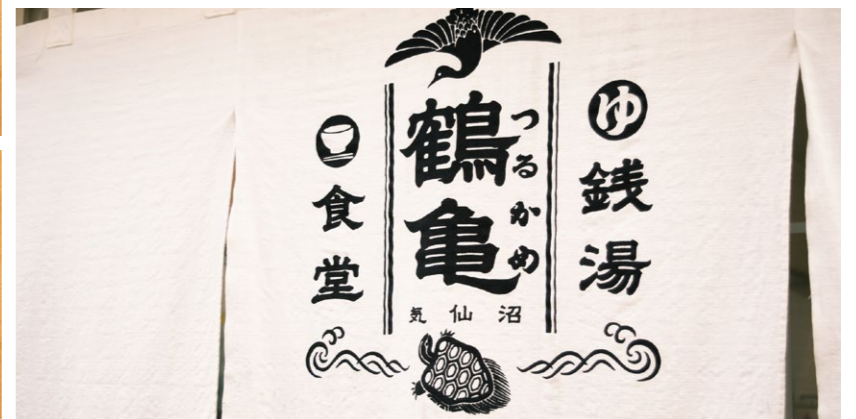 ゆ
銭湯
鶴亀
つるかめ
気仙沼
食堂